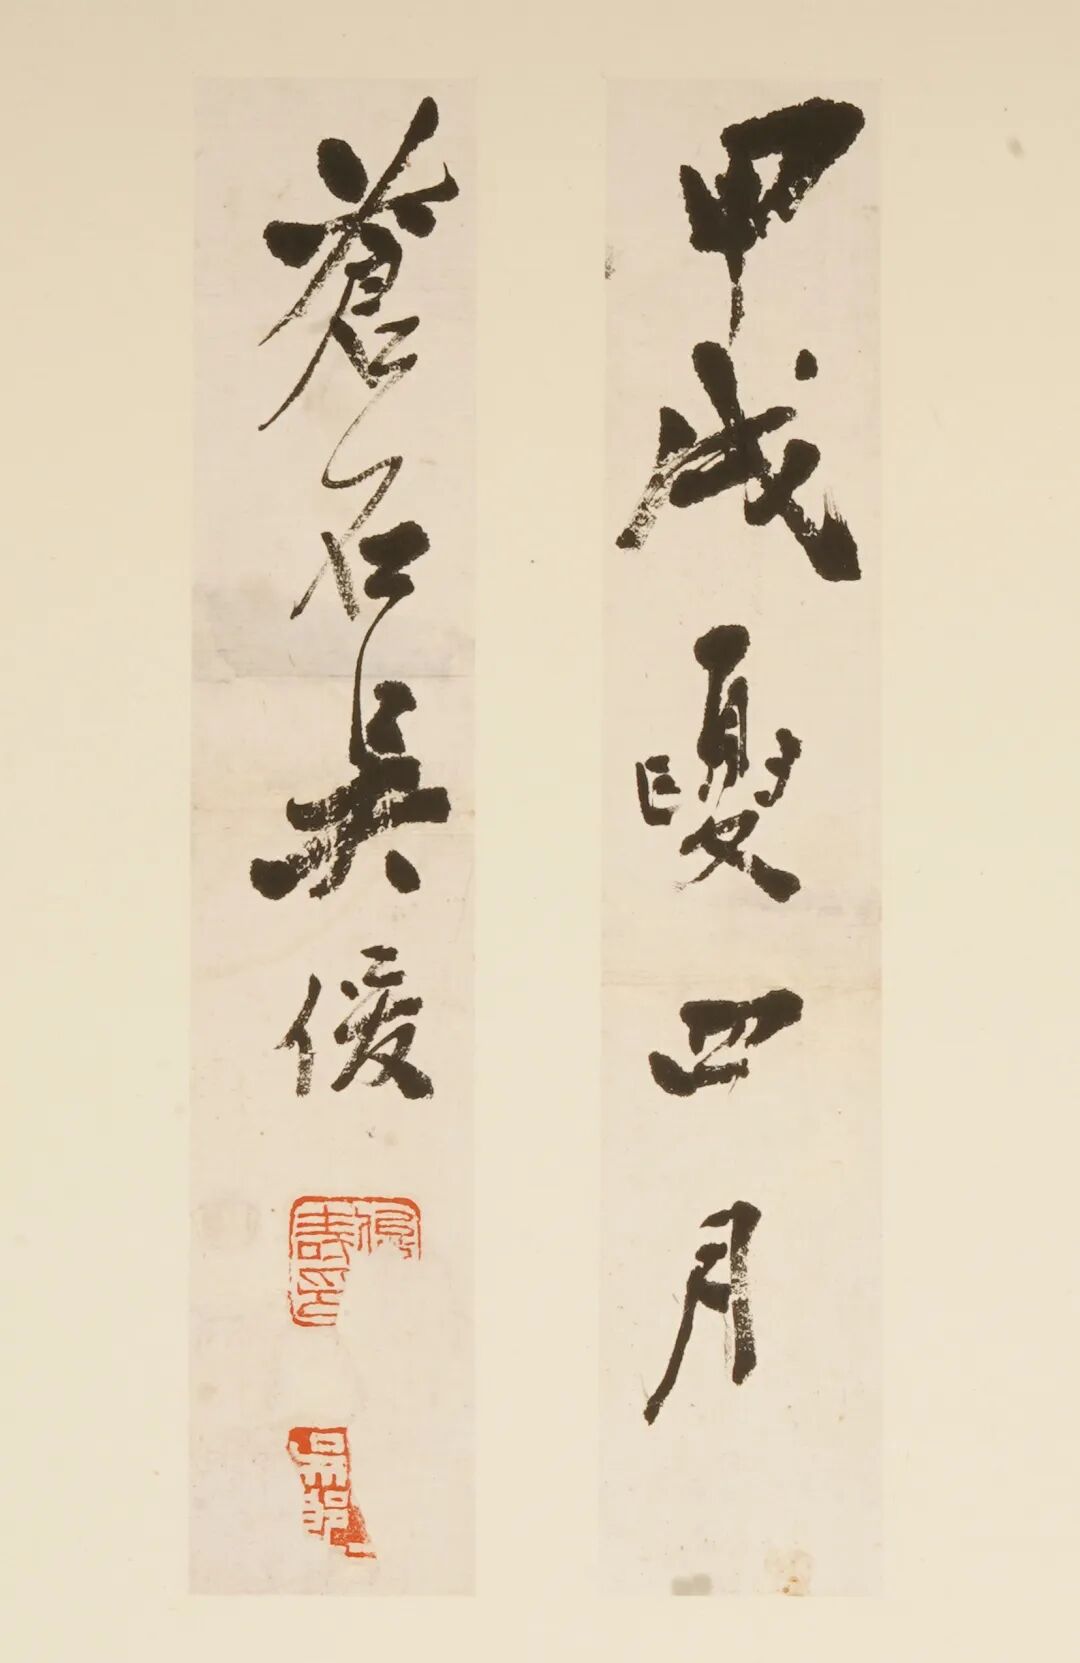 甲戌夏四月
蒼石吳俊